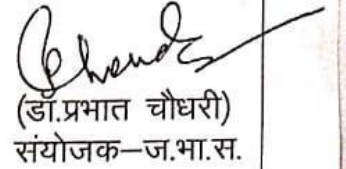 (डॉ.प्रभात चौधरी)
संयोजक–ज.भा.स.